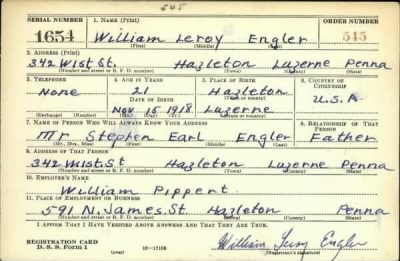 545
SERIAL NUMBER 1. NAME (Print) ORDER NUMBER
1654 William Leroy Engler 545
(First) (Middle) (Last)
2. ADDRESS (Print)
342 W 1st St. Hazleton Luzerne Penna
(Number and street or R. F. D. number) (Town) (County) (State)
3. TELEPHONE 4. AGE IN YEARS 5. PLACE OF BIRTH 6. COUNTRY OF CITIZENSHIP
None 21 Hazleton
DATE OF BIRTH (Town) U.S.A
Nov 15 1918 Luzerne
(Exchange) (Number) (Mo.) (Day) (Yr.) (State or country)
7. NAME OF PERSON WHO WILL ALWAYS KNOW YOUR ADDRESS 8. RELATIONSHIP OF THAT PERSON
Mr Stephen Earl Engler Father
(Mr., Mrs., Miss) (First) (Middle) (Last)
9. ADDRESS OF THAT PERSON
342 W 1st. St Hazleton Luzerne Penna
(Number and street or R. F. D. number) (Town) (County) (State)
10. EMPLOYER'S NAME
William Pippert
11. PLACE OF EMPLOYMENT OR BUSINESS
591 N. James. St. Hazleton Penna
(Number and street or R. F. D. number) (Town) (County) (State)
I AFFIRM THAT I HAVE VERIFIED ABOVE ANSWERS AND THAT THEY ARE TRUE.
REGISTRATION CARD
D. S. S. Form 1 (over) 16—17105 William Leroy Engler
(Registrant's signature)